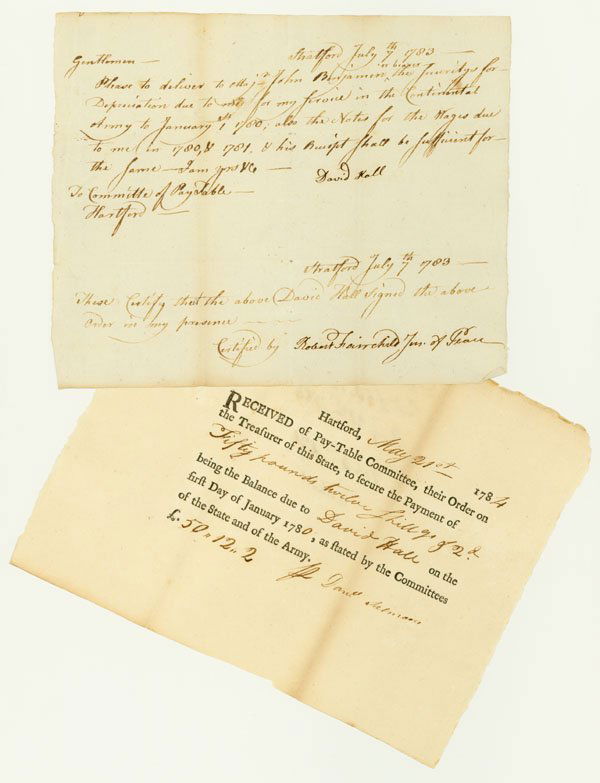 Stratford July 7th 1783
Gentlemen
Please to deliver to Majr John Benjamin the Security for
Depreciation due to me for my Service in the Continental
Army to January 1st 1780, also the Notes for the Wages due
to me in 1780, & 1781, & his Receipt shall be sufficient for
the same I am yrs &c
David Hall
To Committe of Pay Table
Hartford
Stratford July 7th 1783
These Certify that the above David Hall signed the above
Order in my presence
Certified by Robert Fairchild Jus. of Peace
Hartford, May 21st 1784
RECEIVED of Pay-Table Committee, their Order on
the Treasurer of this State, to secure the Payment of
Fifty pounds twelve Shillgs & 2d
being the Balance due to David Hall on the
first Day of January 1780, as stated by the Committees
of the State and of the Army.
£. 50 " 12 .. 2